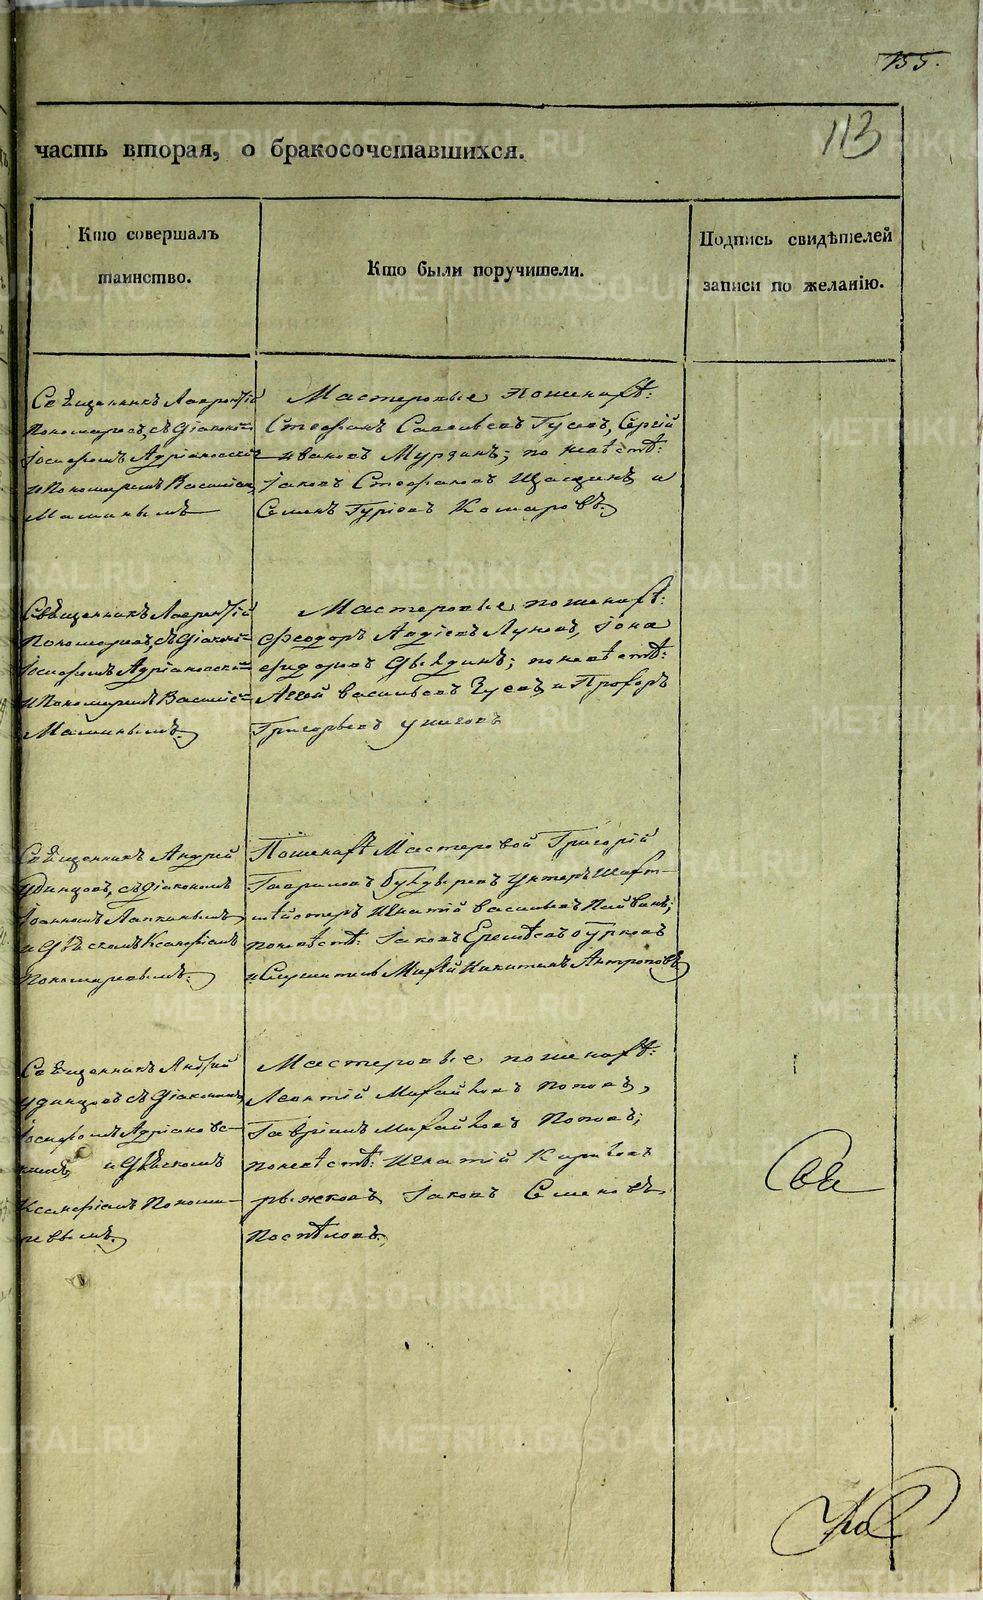 155.
113
часть вторая, о бракосочетавшихся.
Кто совершалъ
таинство.
Кто были поручители.
Подпись свидѣтелей
записи по желанію.
Священникъ Лаврентій
Пономаревъ, съ Діакономъ
Іосифомъ Адріановскимъ
и Пономаремъ Василіемъ
Малиныхъ
Мастеровые по женихѣ:
Стефанъ Савельевъ Гусевъ, Сергій
Ивановъ Мурзинъ; по невѣстѣ:
Іаковъ Стефановъ и
Семенъ Гуріевъ Комаровъ.
Священникъ Лаврентій
Пономаревъ, съ Діакономъ
Іосифомъ Адріановскимъ
и Пономаремъ Василіемъ
Малиныхъ.
Мастеровые по женихѣ:
Феодоръ Авдіевъ Луковъ, Іона
по невѣстѣ:
Васильевъ Гусевъ и Прохоръ
Григорьевъ
Священникъ Андрей
Удинцовъ, съ Діакономъ
Іоанномъ Лапкинымъ
и Дьячкомъ Ксенофонтомъ
Пономаревымъ.
По женихѣ Мастеровой Григорій
Гавриловъ Унтеръ Шахт-
мейстеръ Игнатій Васильевъ
по невѣстѣ: Іаковъ Бурковъ
и Служитель Никитинъ Антроповъ
Священникъ Андрей
Удинцовъ съ Діакономъ
Іосифомъ Адріановс-
кимъ, и Дьячкомъ
Ксенофонтомъ Понома-
ревымъ.
Мастеровые по женихѣ:
Леонтій Михайловъ Поповъ,
Гавріилъ Михайловъ Поповъ;
по невѣстѣ: Игнатій Кириловъ
Рыжковъ Іаковъ Семеновъ
Поспѣловъ.